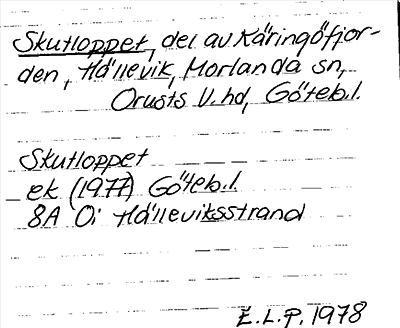 Skutloppet, del av Käringöfjor-
den, Hällevik, Morlanda sn,
Orusts V. hd, Göteb.l.
Skutloppet
ek (1977) Göteb.l.
8A 0i Hälleviksstrand
E.L.P. 1978